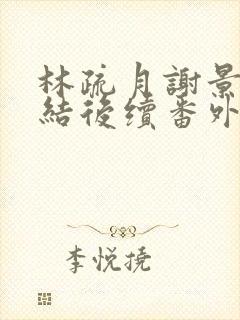 林疏月謝景
結後續番外
李悅撓